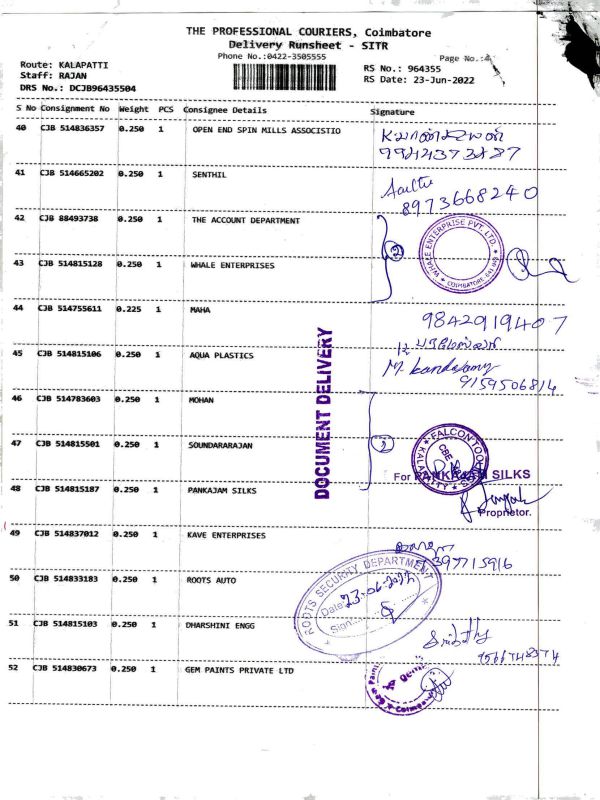 THE PROFESSIONAL COURIERS, Coimbatore
Delivery Runsheet - SITR
Phone No.:0422-3505555
Page No.:4
Route: KALAPATTI
Staff: RAJAN
DRS No.: DCJB96435504
RS No.: 964355
RS Date: 23-Jun-2022
S No Consignment No Weight PCS Consignee Details Signature
40 CJB 514836357 0.250 1 OPEN END SPIN MILLS ASSOCISTIO
41 CJB 514665202 0.250 1 SENTHIL
8973668240
42 CJB 88493738 0.250 1 THE ACCOUNT DEPARTMENT
2
WHALE ENTERPRISE PVT. LTD.
COIMBATORE
43 CJB 514815128 0.250 1 WHALE ENTERPRISES
44 CJB 514755611 0.225 1 MAHA
9842919407
45 CJB 514815106 0.250 1 AQUA PLASTICS
M. Kandasamy
9159506814
DOCUMENT DELIVERY
46 CJB 514783603 0.250 1 MOHAN
47 CJB 514815501 0.250 1 SOUNDARARAJAN
FALCON
CBE
For PANKAJAM SILKS
48 CJB 514815187 0.250 1 PANKAJAM SILKS
Proprietor.
49 CJB 514837012 0.250 1 KAVE ENTERPRISES
50 CJB 514833183 0.250 1 ROOTS AUTO
ROOTS SECURITY DEPARTMENT
Date: 23-06-2022
Sign:
51 CJB 514815103 0.250 1 DHARSHINI ENGG
52 CJB 514830673 0.250 1 GEM PAINTS PRIVATE LTD